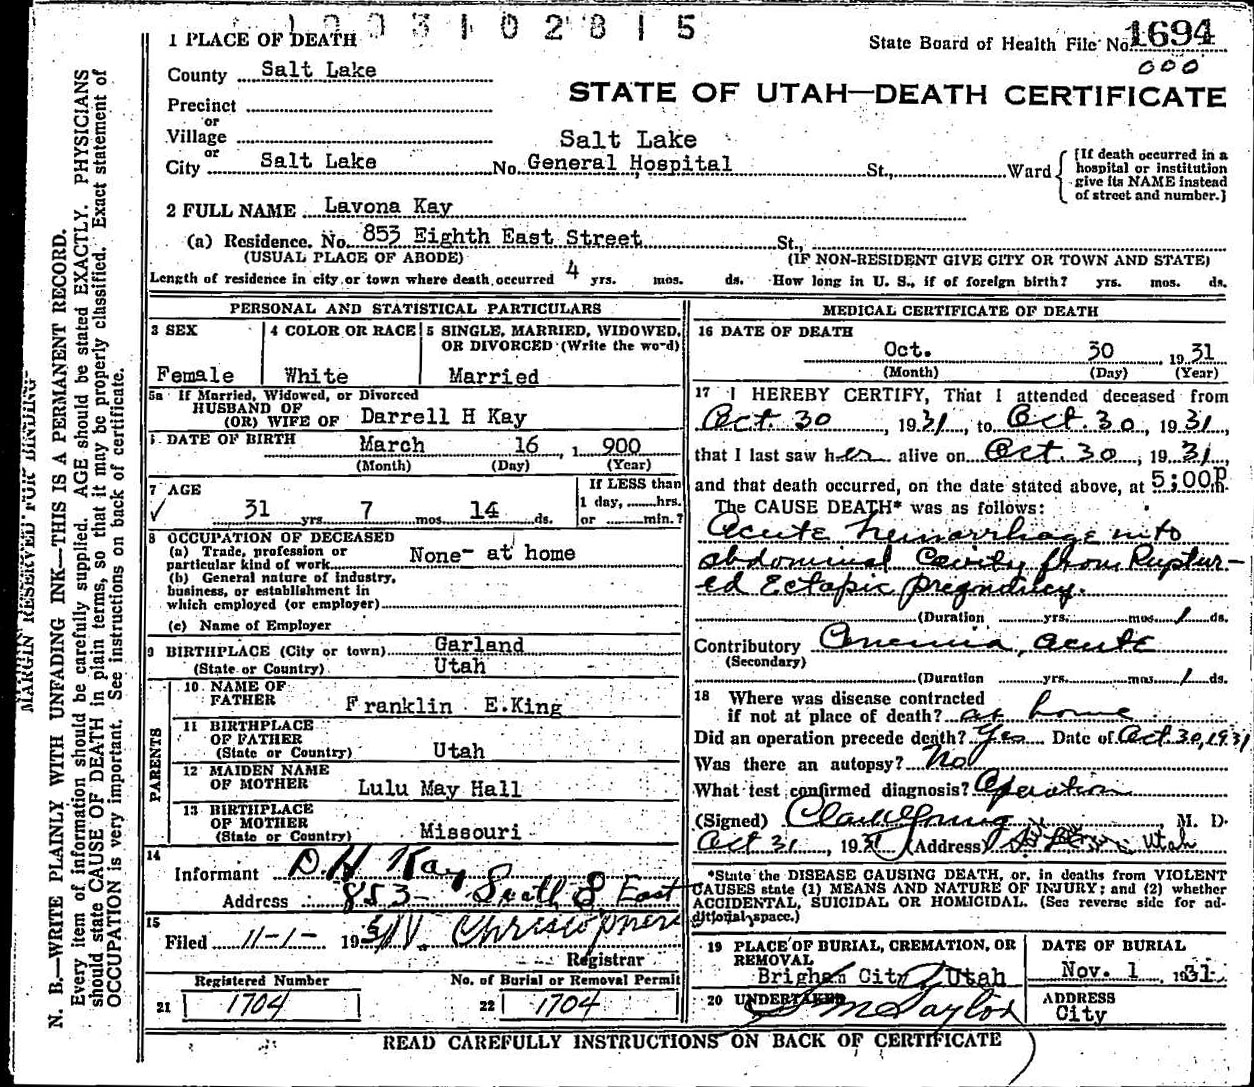 1003102815
1 PLACE OF DEATH
State Board of Health File No. 1694
000
County Salt Lake
STATE OF UTAH—DEATH CERTIFICATE
Precinct
or
Village
Salt Lake
or
City Salt Lake No. General Hospital St., Ward
[If death occurred in a
hospital or institution
give its NAME instead
of street and number.]
2 FULL NAME Lavona Kay
(a) Residence. No. 853 Eighth East Street St.,
(USUAL PLACE OF ABODE) (IF NON-RESIDENT GIVE CITY OR TOWN AND STATE)
Length of residence in city or town where death occurred 4 yrs. mos. ds. How long in U. S., if of foreign birth? yrs. mos. ds.
PERSONAL AND STATISTICAL PARTICULARS
3 SEX
Female
4 COLOR OR RACE
White
5 SINGLE, MARRIED, WIDOWED,
OR DIVORCED (Write the word)
Married
5a If Married, Widowed, or Divorced
HUSBAND OF
(OR) WIFE OF Darrell H Kay
DATE OF BIRTH March 16, 1 900
(Month) (Day) (Year)
7 AGE
31 yrs. 7 mos. 14 ds.
If LESS than
1 day, hrs.
or min.?
8 OCCUPATION OF DECEASED
(a) Trade, profession or
particular kind of work None- at home
(b) General nature of industry,
business, or establishment in
which employed (or employer)
(c) Name of Employer
9 BIRTHPLACE (City or town) Garland
(State or Country) Utah
PARENTS
10 NAME OF
FATHER Franklin E.King
11 BIRTHPLACE
OF FATHER
(State or Country) Utah
12 MAIDEN NAME
OF MOTHER Lulu May Hall
13 BIRTHPLACE
OF MOTHER
(State or Country) Missouri
14
Informant D.H. Kay
Address 853 - South 8 East
15
Filed 11-1- 1931
Registrar
Registered Number
21 1704
No. of Burial or Removal Permit
22 1704
MEDICAL CERTIFICATE OF DEATH
16 DATE OF DEATH
Oct. 30 1931
(Month) (Day) (Year)
17 I HEREBY CERTIFY, That I attended deceased from
Oct. 30, 1931, to Oct. 30, 1931,
that I last saw her alive on Oct. 30, 1931,
and that death occurred, on the date stated above, at 5:00P m.
The CAUSE DEATH* was as follows:
Acute hemorrhage into
abdominal Cavity from Ruptur-
ed Ectopic pregnancy.
(Duration yrs. mos. 1 ds.
Contributory Anemia, acute
(Secondary)
(Duration yrs. mos. 1 ds.
18 Where was disease contracted
if not at place of death? at home
Did an operation precede death? Yes Date of Oct 30, 1931
Was there an autopsy? No
What test confirmed diagnosis? Operation
(Signed) Clark Young, M. D.
Oct 31, 1931 (Address) Utah
*State the DISEASE CAUSING DEATH, or, in deaths from VIOLENT
CAUSES state (1) MEANS AND NATURE OF INJURY; and (2) whether
ACCIDENTAL, SUICIDAL OR HOMICIDAL. (See reverse side for ad-
ditional space.)
19 PLACE OF BURIAL, CREMATION, OR
REMOVAL
Brigham City Utah
DATE OF BURIAL
Nov. 1 1931
20 UNDERTAKER
S M Taylor
ADDRESS
City
READ CAREFULLY INSTRUCTIONS ON BACK OF CERTIFICATE
MARGIN RESERVED FOR BINDING
N. B.—WRITE PLAINLY WITH UNFADING INK—THIS IS A PERMANENT RECORD.
Every item of information should be carefully supplied. AGE should be stated EXACTLY. PHYSICIANS
should state CAUSE OF DEATH in plain terms, so that it may be properly classified. Exact statement of
OCCUPATION is very important. See instructions on back of certificate.